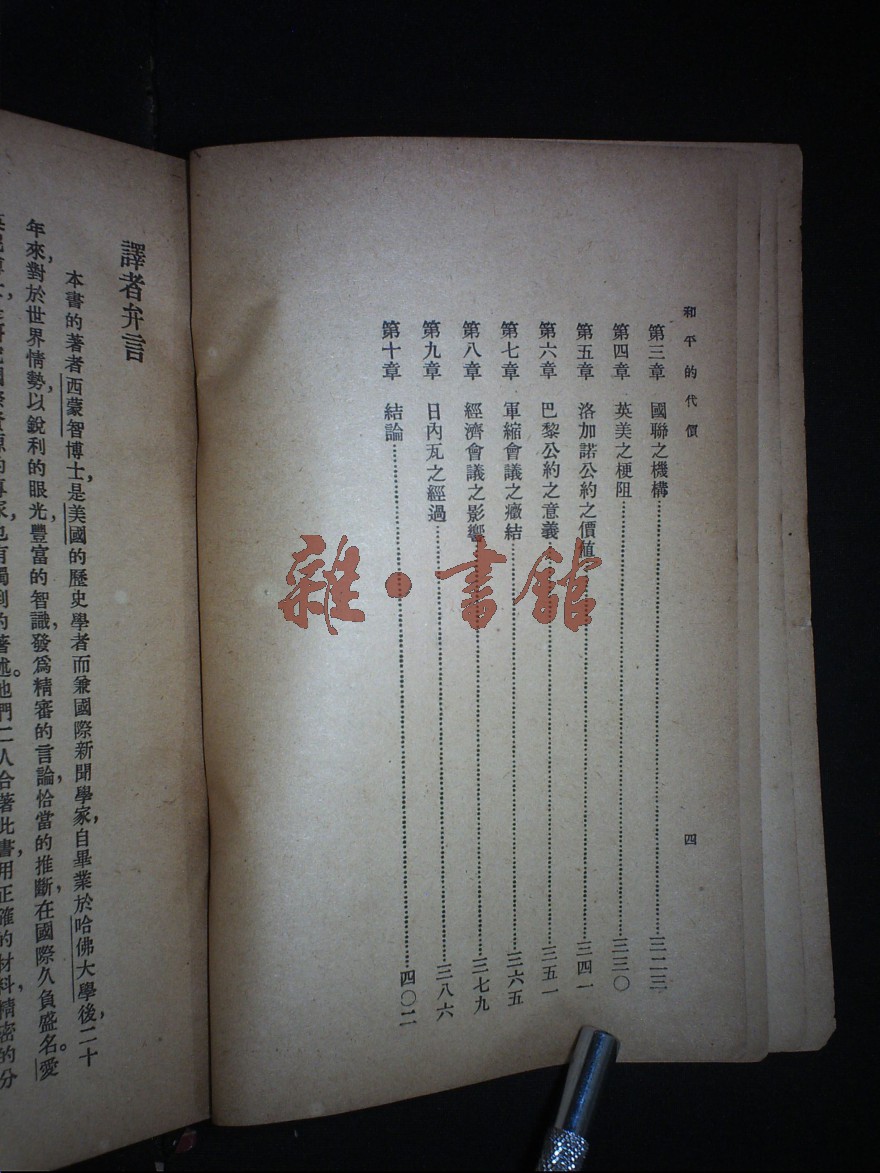 和平的代價
四
第三章 國聯之機構……三二三
第四章 英美之梗阻……三三〇
第五章 洛加諾公約之價值……三四一
第六章 巴黎公約之意義……三五一
第七章 軍縮會議之癥結……三六五
第八章 經濟會議之影響……三七九
第九章 日內瓦之經過……三八六
第十章 結論……四〇二
譯者弁言
本書的著者西蒙智博士,是美國的歷史學者而兼國際新聞學家,自畢業於哈佛大學後,二十
年來,對於世界情勢,以銳利的眼光,豐富的智識,發爲精審的言論,恰當的推斷,在國際久負盛名。愛
究國際資源的專家,也有獨到的著述。他們二人合著此書,用正確的材料,精密的分
雜·書館